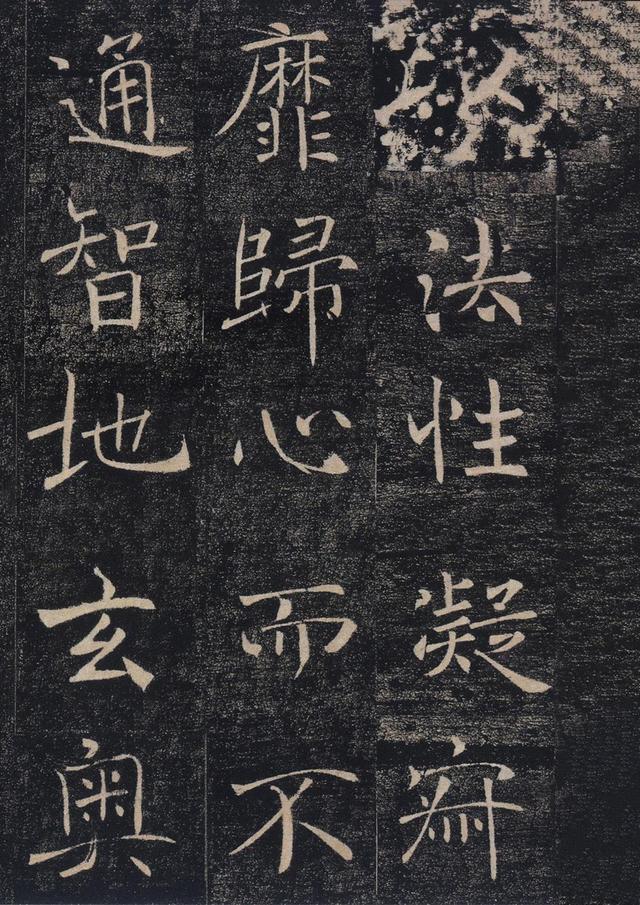 法性凝寂
靡歸心而不
通智地玄奥